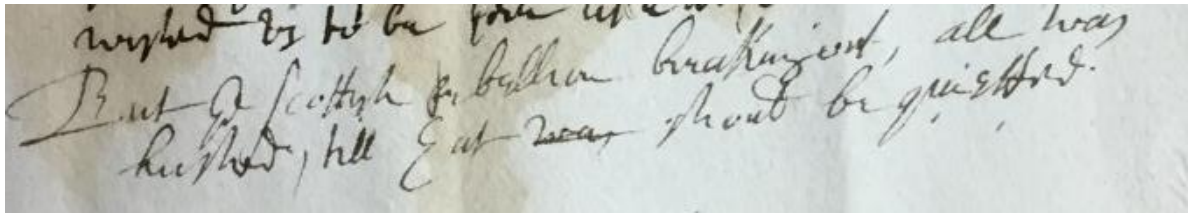 wished us to be
But ye Scottish Rebellion breaking out, all was
hushed, till that was should be quietted.